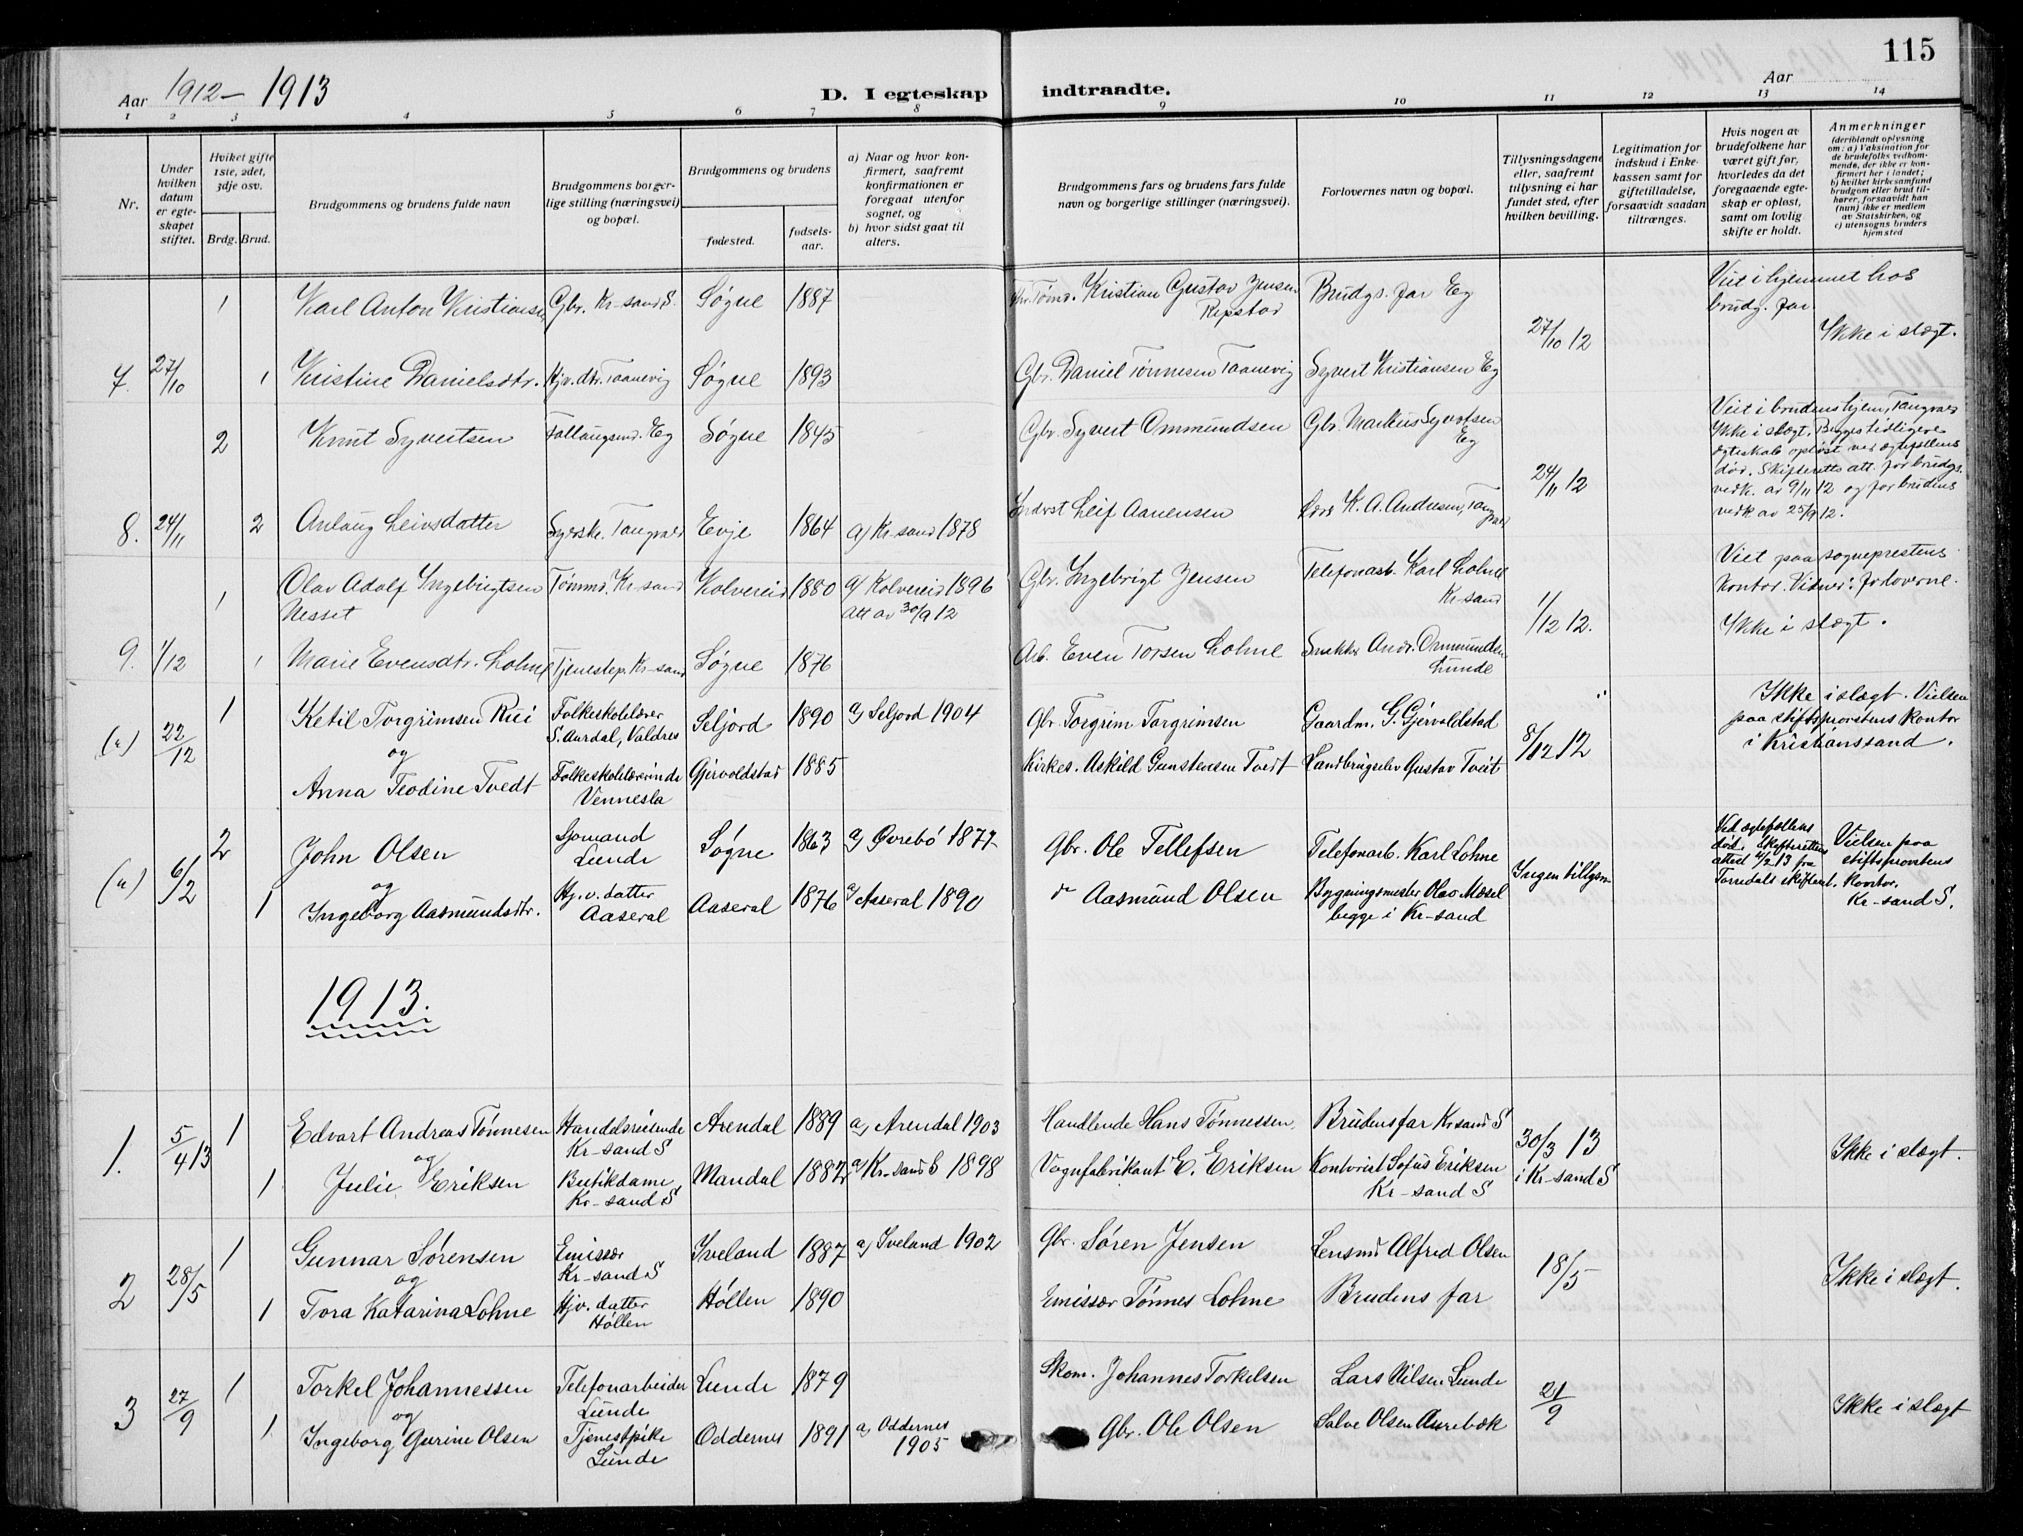 115
Aar 1912 – 1913
D. I egteskap indtraadte.
Aar
1 2 3 4 5 6 7 8 9 10 11 12 13 14
Nr.
Under hvilken datum er egteskapet stiftet.
Hvilket gifte 1ste, 2det, 3dje osv.
Brdg. Brud.
Brudgommens og brudens fulde navn
Brudgommens borgerlige stilling (næringsvei) og bopæl.
Brudgommens og brudens
fødested.
fødselsaar.
a) Naar og hvor konfirmert, saafremt konfirmationen er foregaat utenfor sognet, og
b) hvor sidst gaat til alters.
Brudgommens fars og brudens fars fulde navn og borgerlige stillinger (næringsvei).
Forlovernes navn og bopæl.
Tillysningsdagene eller, saafremt tillysning ei har fundet sted, efter hvilken bevilling.
Legitimation for indskud i Enkekassen samt for giftetilladelse, forsaavidt saadan tiltrænges.
Hvis nogen av brudefolkene har været gift før, hvorledes da det foregaaende egteskap er opløst, samt om lovlig skifte er holdt.
Anmerkninger
(deriblandt oplysning om: a) Vaksination for de brudefolks vedkommende, der ikke er konfirmert her i landet; b) hvilket kirkesamfund brudgom eller brud tilhører, forsaavidt han (hun) ikke er medlem av Statskirken, og c) utensogns bruders hjemsted
1 Karl Anton Kristiansen Gbr. Kr-sand S. Søgne 1887 Tømd. Kristian Gustav Jensen Repstad Brudgs. far Eg 27/10 12 Viet i hjemmet hos brudg. far.
Ikke i slægt.
7. 27/10 1 Kristine Danielsdtr. Hjv. dtr. Taanevig Søgne 1893 Gbr. Daniel Tønnesen Taanevig Syvert Kristiansen Eg
2 Knut Syvertsen Eg Søgne 1845 Gbr. Syvert Ommundsen Gbr. Markus Syvertsen Eg 24/11 12 Viet i brudens hjem, Tangvald
Ikke i slægt. Begges tidligere
egteskab opløst ved egtefellens
død. Skifteretts att. for brudgs.
vedk. av 9/11 12 og for brudens
vedk av 25/9 12.
8. 24/11 2 Anlaug Leivsdatter Syerske. Tangvald Evje 1864 a) Kr-sand 1878 Inderst Leif Aanensen K. A. Andersen, Tangvald
1 Olav Adolf Ingebrigtsen Nesset Tømmd. Kr-sand Kolvereid 1880 a) Kolvereid 1896 Att av 30/9 12 Gbr. Ingebrigt Jensen Telefonarb. Karl Lohne Kr-sand 1/12 12. Viet paa sogneprestens
kontor. Vidner: forloverne.
Ikke i slægt.
9. 1/12 1 Marie Evensdtr. Lohne Tjenestep. Kr-sand Søgne 1876 Arb. Even Torsen Lohne Snekker Andr. Ommundsen Lunde
(a) 22/12 1 Ketil Torgrimsen Rui Folkeskolelærer S. Aurdal, Valdres Seljord 1890 a) Seljord 1904 Gbr. Torgrim Torgrimsen Gaardm. G. Gjervoldstad 8/12 12 Ikke i slægt. Vielsen
paa stiftsprovstens kontor
i Kristianssand.
og
Anna Teodine Tvedt Folkeskolelærerinde Vennesla Gjervoldstad 1885 Kirkes. Askild Gunstensen Tvedt Landbrugselev Gustav Tveit
(a) 6/2 2 John Olsen Sjømand Lunde Søgne 1863 a) Øvrebø 1877 Gbr. Ole Tellefsen Telefonarb. Karl Lohne Ingen tillysn. Ved egtefellens
død. Skifterettens
attest 4/2 13 fra
Torridals skifteret.
Vielsen paa
stiftsprovstens
Kontor.
Kr-sand S.
og
1 Ingeborg Aasmundsdtr. Hj. v. datter Aaseral Aaseral 1876 a) Aaseral 1890 do Aasmund Olsen Bygningsmester Olav Mosel begge i Kr-sand
1913.
1. 5/4 13 1 Edvart Andreas Tønnesen Handelsreisende Kr-sand S Arendal 1889 a) Arendal 1903 Handlende Hans Tønnessen. Brudens far Kr sand S 30/3 13 i Kr-sand S Ikke i slægt.
og
1 Julie Eriksen Butikdame, Kr-sand S Mandal 1882 a) Kr-sand S 1898 Vognfabrikant E. Eriksen Kontorist Sofus Eriksen Kr-sand S
2 28/5 1 Gunnar Sørensen Emissær Kr-sand S Iveland 1887 a) Iveland 1902 Gbr. Søren Jensen Lensmd Alfred Olsen 18/5 Ikke i slægt.
og
1 Tora Katarina Lohne Hjv. datter Høllen Høllen 1890 Emissær Tønnes Lohne Brudens far
3 27/9 1 Torkel Johannessen Telefonarbeider Lunde Lunde 1879 Skom. Johannes Torkelsen Lars Nilsen Lunde 21/9 Ikke i slægt
og
1 Ingeborg Gurine Olsen Tjenestpike Lunde Oddernes 1891 a) Oddernes 1905 Gbr. Ole Olsen Salve Olsen Aurebæk